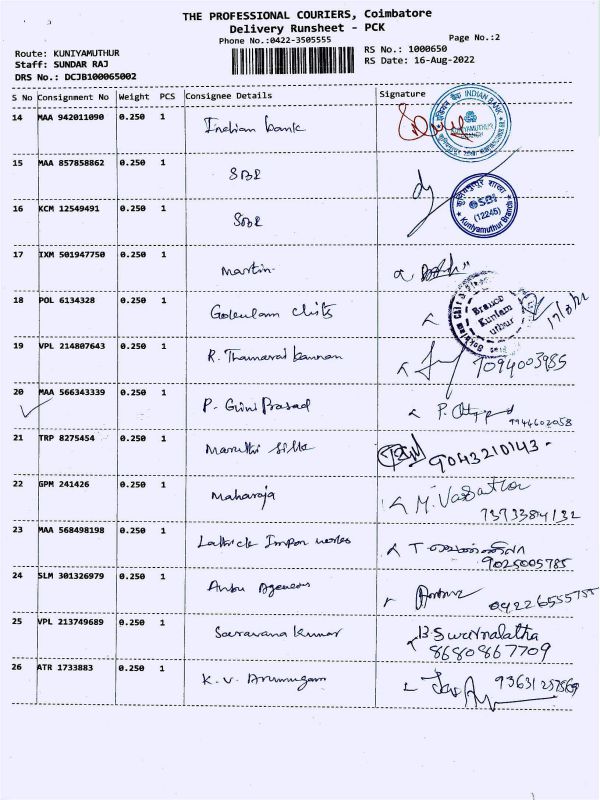 THE PROFESSIONAL COURIERS, Coimbatore
Delivery Runsheet - PCK
Phone No.:0422-3505555
Page No.:2
Route: KUNIYAMUTHUR
RS No.: 1000650
Staff: SUNDAR RAJ
RS Date: 16-Aug-2022
DRS No.: DCJB100065002
S No Consignment No Weight PCS Consignee Details Signature
14 MAA 942011090 0.250 1 Indian bank
INDIAN BANK
KUNIYAMUTHUR
BRANCH
15 MAA 857858862 0.250 1 SBI
16 KCM 12549491 0.250 1 SBI
SBI
(12245)
Kuniyamuthur Branch
17 IXM 501947750 0.250 1 Martin
18 POL 6134328 0.250 1 Gokulam Chits
Branch
19 VPL 214807643 0.250 1 R. Thamarai kannan
7094003985
20 MAA 566343339 0.250 1 P. Giri Prasad
9944602058
21 TRP 8275454 0.250 1 Maruthi Silk
9043210143
22 GPM 241426 0.250 1 Maharaja
7373384132
23 MAA 568498198 0.250 1
9025005785
24 SLM 301326979 0.250 1 Anbu Agencies
25 VPL 213749689 0.250 1 Saravana kumar B. Swarnalatha
8680867709
26 ATR 1733883 0.250 1 K. V. Arumugam